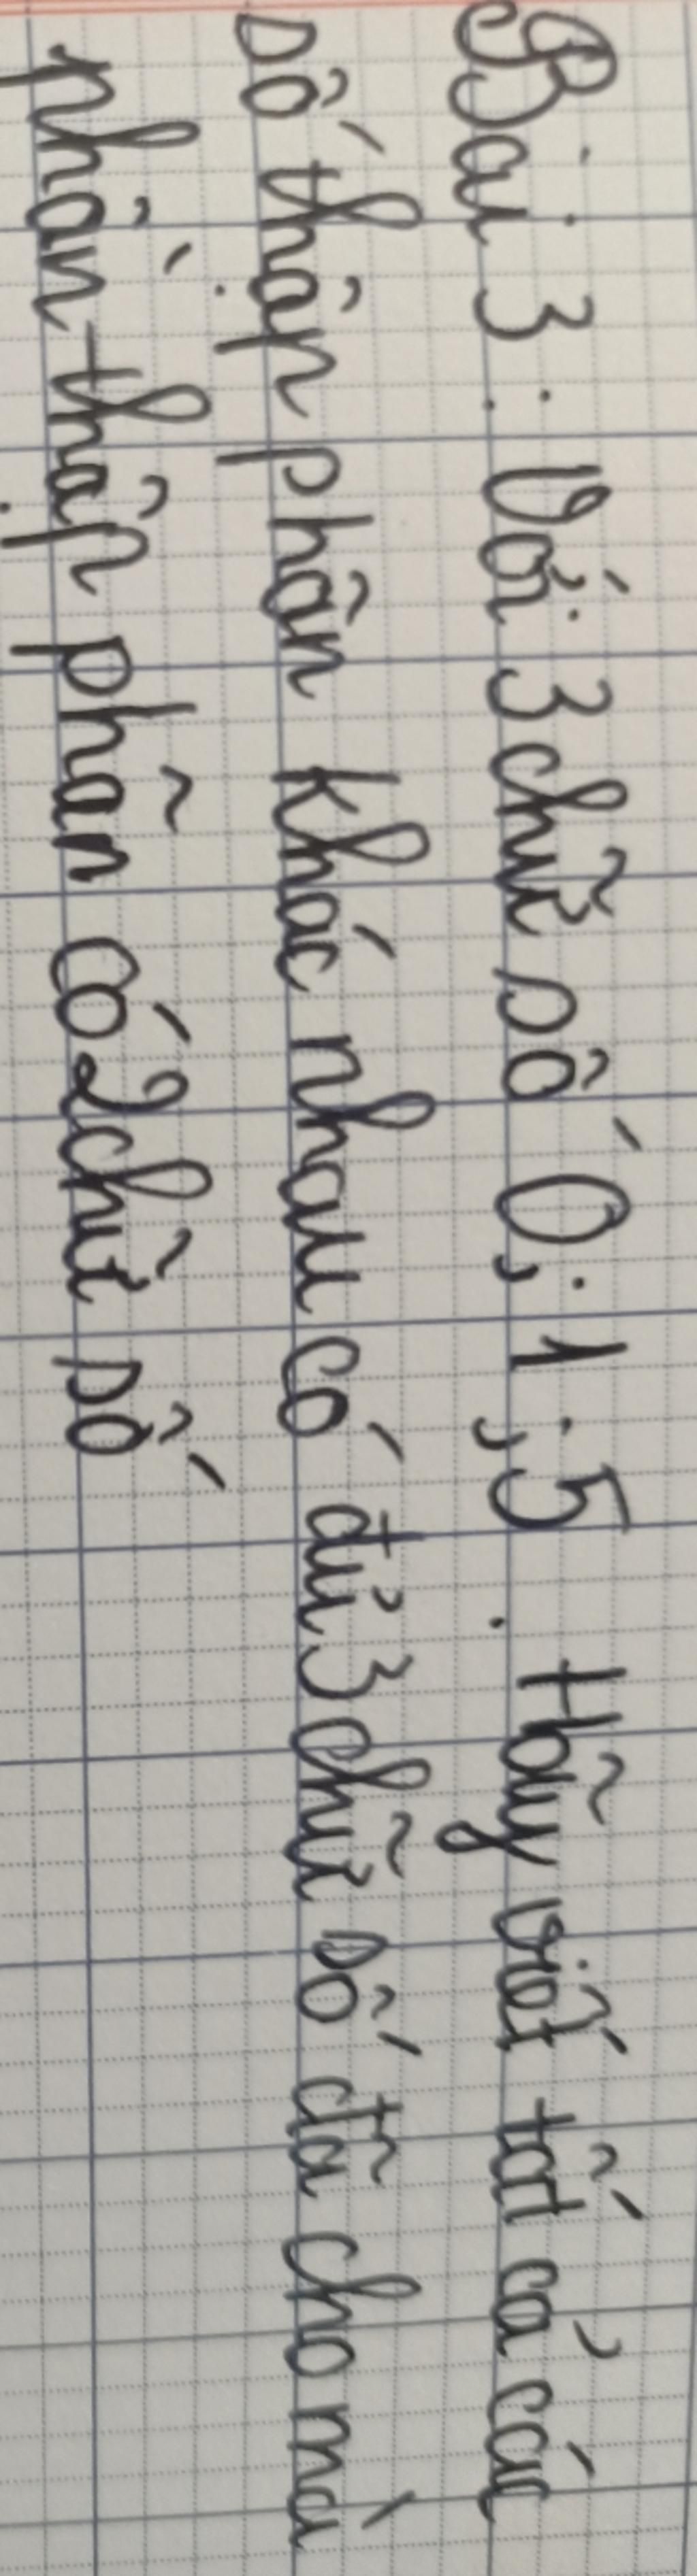 Bài 3: Với 3 chữ số 0; 1; 5. Hãy viết tất cả các
số thập phân khác nhau có đủ 3 chữ số đã cho mà
phần thập phân có 2 chữ số